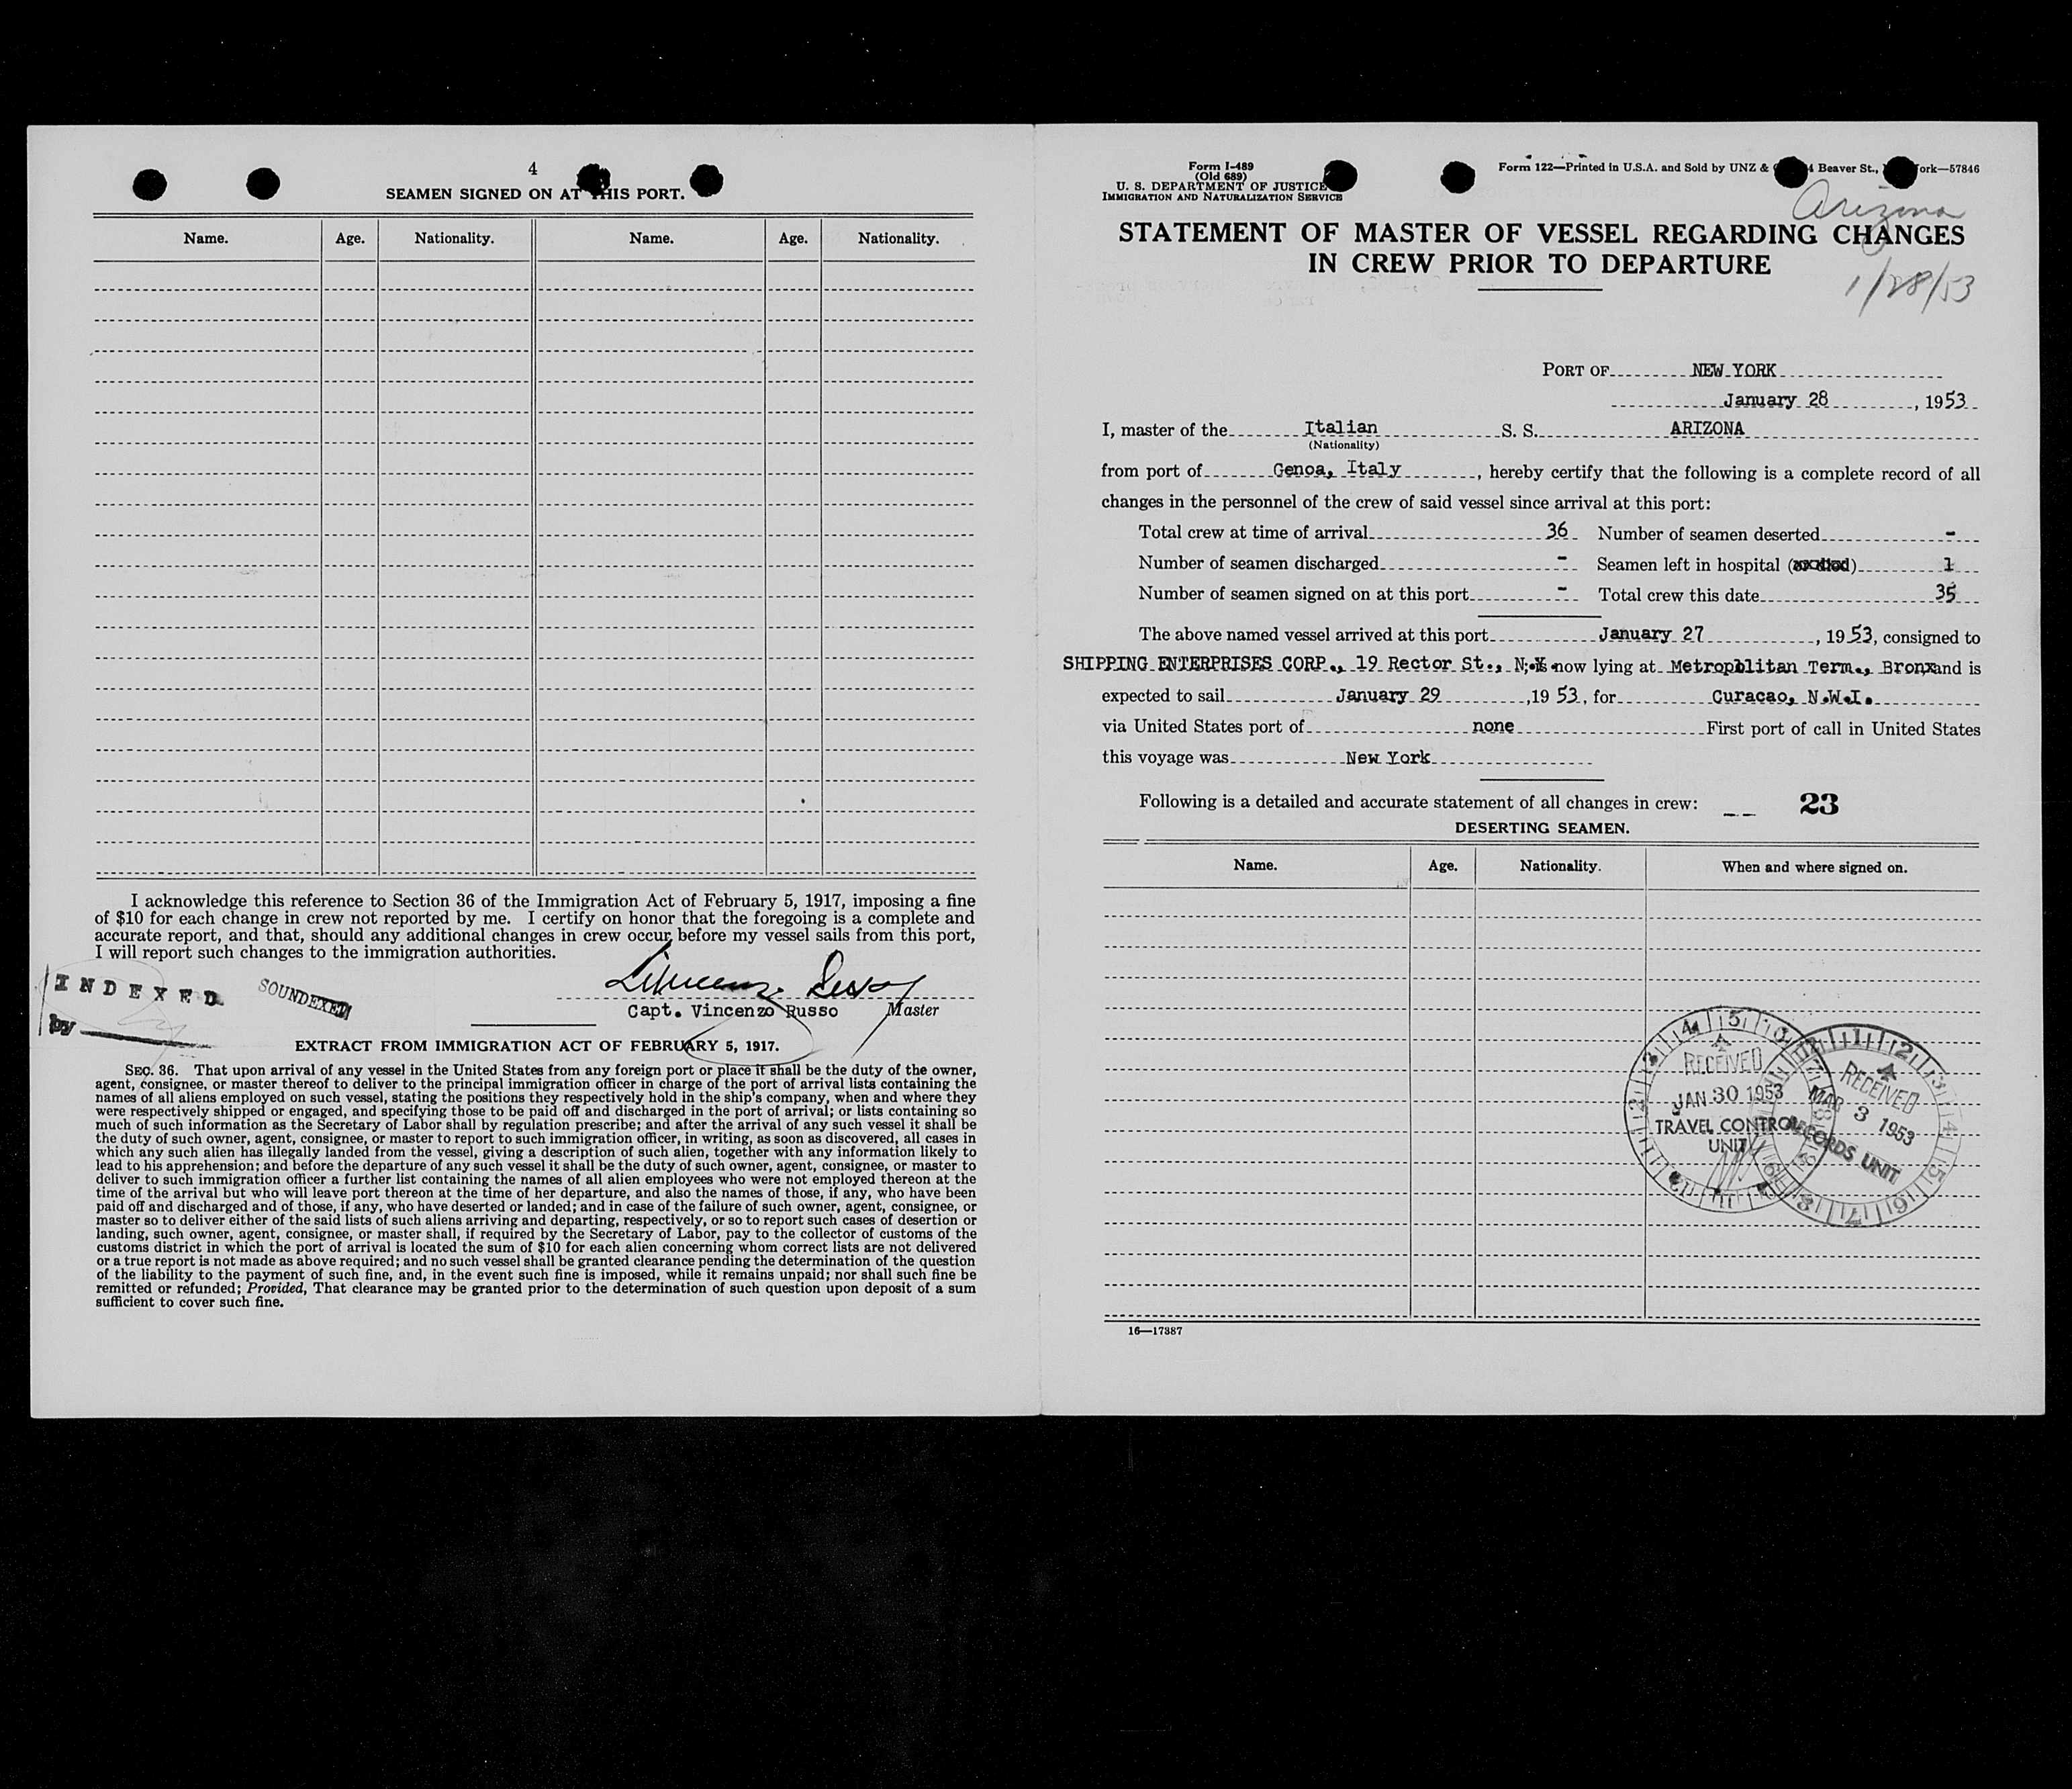 4
SEAMEN SIGNED ON AT THIS PORT.
Name. Age. Nationality. Name. Age. Nationality.
I acknowledge this reference to Section 36 of the Immigration Act of February 5, 1917, imposing a fine
of $10 for each change in crew not reported by me. I certify on honor that the foregoing is a complete and
accurate report, and that, should any additional changes in crew occur before my vessel sails from this port,
I will report such changes to the immigration authorities.
INDEXED
by
SOUNDEXED
Capt. Vincenzo Russo Master
EXTRACT FROM IMMIGRATION ACT OF FEBRUARY 5, 1917.
SEC. 36. That upon arrival of any vessel in the United States from any foreign port or place it shall be the duty of the owner,
agent, consignee, or master thereof to deliver to the principal immigration officer in charge of the port of arrival lists containing the
names of all aliens employed on such vessel, stating the positions they respectively hold in the ship's company, when and where they
were respectively shipped or engaged, and specifying those to be paid off and discharged in the port of arrival; or lists containing so
much of such information as the Secretary of Labor shall by regulation prescribe; and after the arrival of any such vessel it shall be
the duty of such owner, agent, consignee, or master to report to such immigration officer, in writing, as soon as discovered, all cases in
which any such alien has illegally landed from the vessel, giving a description of such alien, together with any information likely to
lead to his apprehension; and before the departure of any such vessel it shall be the duty of such owner, agent, consignee, or master to
deliver to such immigration officer a further list containing the names of all alien employees who were not employed thereon at the
time of the arrival but who will leave port thereon at the time of her departure, and also the names of those, if any, who have been
paid off and discharged and of those, if any, who have deserted or landed; and in case of the failure of such owner, agent, consignee, or
master so to deliver either of the said lists of such aliens arriving and departing, respectively, or so to report such cases of desertion or
landing, such owner, agent, consignee, or master shall, if required by the Secretary of Labor, pay to the collector of customs of the
customs district in which the port of arrival is located the sum of $10 for each alien concerning whom correct lists are not delivered
or a true report is not made as above required; and no such vessel shall be granted clearance pending the determination of the question
of the liability to the payment of such fine, and, in the event such fine is imposed, while it remains unpaid; nor shall such fine be
remitted or refunded; Provided, That clearance may be granted prior to the determination of such question upon deposit of a sum
sufficient to cover such fine.
Form I-489
(Old 689)
U. S. DEPARTMENT OF JUSTICE
IMMIGRATION AND NATURALIZATION SERVICE
Form 122—Printed in U.S.A. and Sold by UNZ & Beaver St., ork—57846
Arizona
STATEMENT OF MASTER OF VESSEL REGARDING CHANGES
IN CREW PRIOR TO DEPARTURE
1/28/53
PORT OF NEW YORK
January 28, 1953
I, master of the Italian S. S. ARIZONA
(Nationality)
from port of Genoa, Italy, hereby certify that the following is a complete record of all
changes in the personnel of the crew of said vessel since arrival at this port:
Total crew at time of arrival 36 Number of seamen deserted -
Number of seamen discharged - Seamen left in hospital () 1
Number of seamen signed on at this port - Total crew this date 35
The above named vessel arrived at this port January 27, 1953, consigned to
SHIPPING ENTERPRISES CORP., 19 Rector St., N.Y. now lying at Metropolitan Term., Bronx and is
expected to sail January 29, 1953, for Curacao, N.W.I.
via United States port of none First port of call in United States
this voyage was New York
Following is a detailed and accurate statement of all changes in crew: -- 23
DESERTING SEAMEN.
Name. Age. Nationality. When and where signed on.
RECEIVED
JAN 30 1953
TRAVEL CONTROL
UNIT
RECEIVED
MAR 3 1953
RECORDS UNIT
16—17387